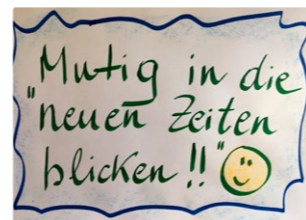 Mutig in die
"neuen Zeiten
blicken !!"